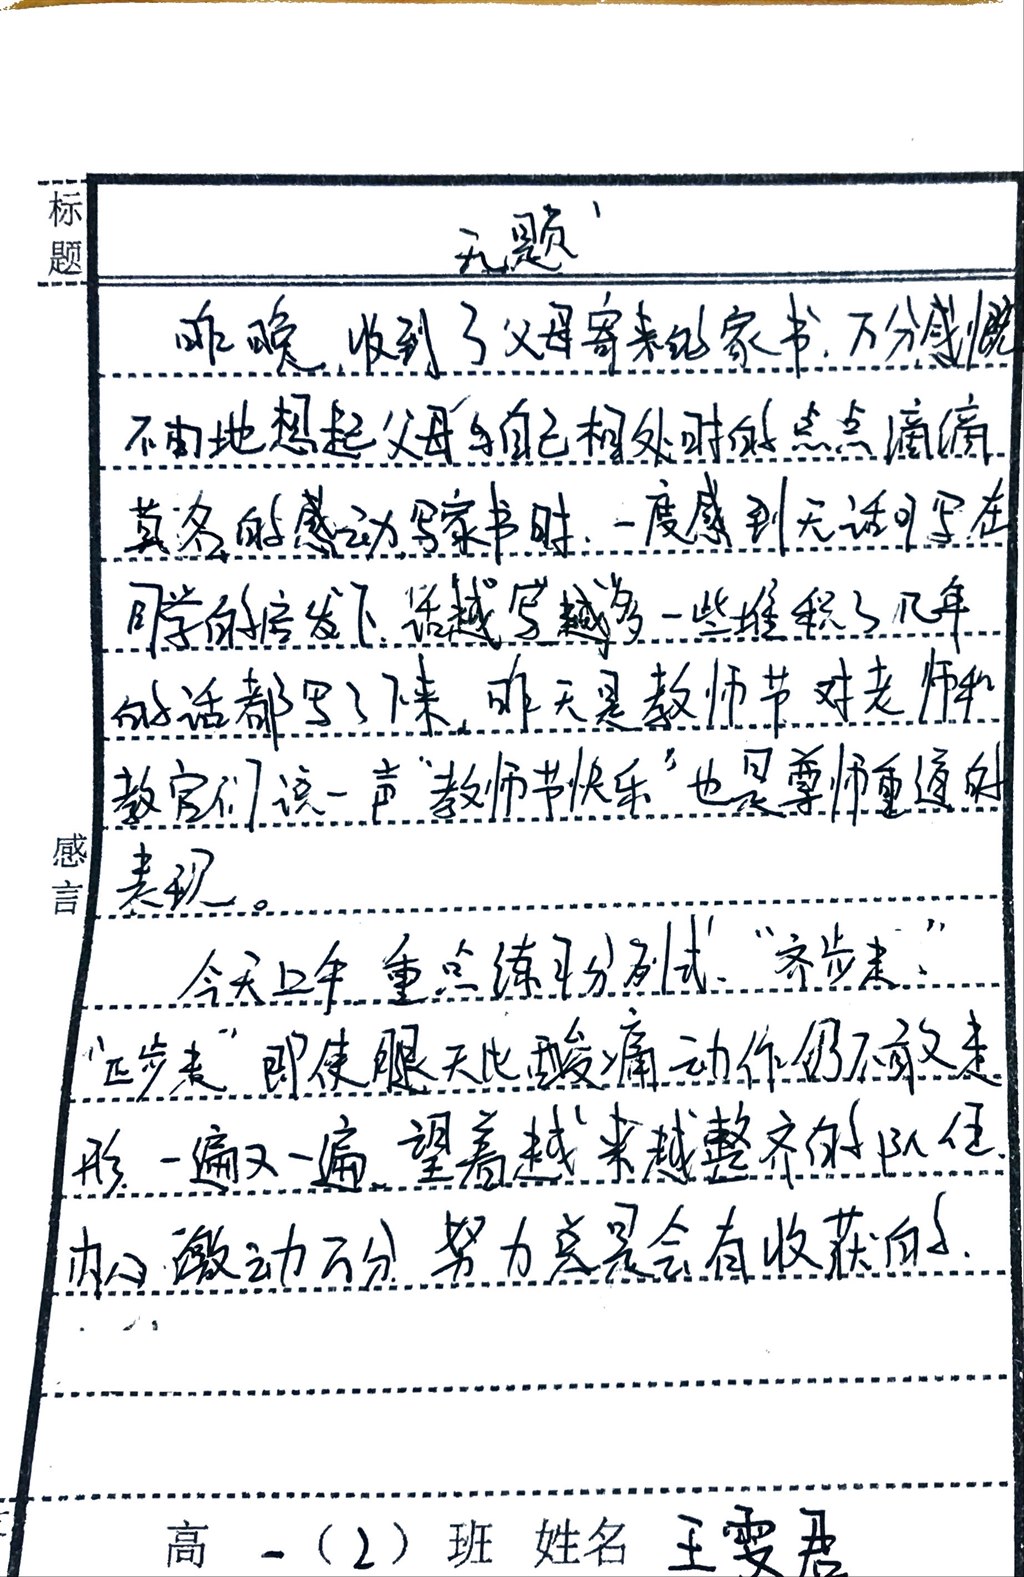 标题
无题
昨晚,收到了父母寄来的家书,万分感慨
不由地想起父母与自己相处时的点点滴滴
莫名的感动,写家书时,一度感到无话可写在
同学的启发下,话越写越多一些堆积了几年
的话都写了下来。昨天是教师节对老师和
教官们说一声“教师节快乐”也是尊师重道的
感言
表现。
今天上午,重点练习分列式、“齐步走”
“正步走”即使腿无比酸痛动作仍不敢走
形,一遍又一遍,望着越来越整齐的队伍,
内心激动万分,努力总是会有收获的.
高一(2)班 姓名 王雯君